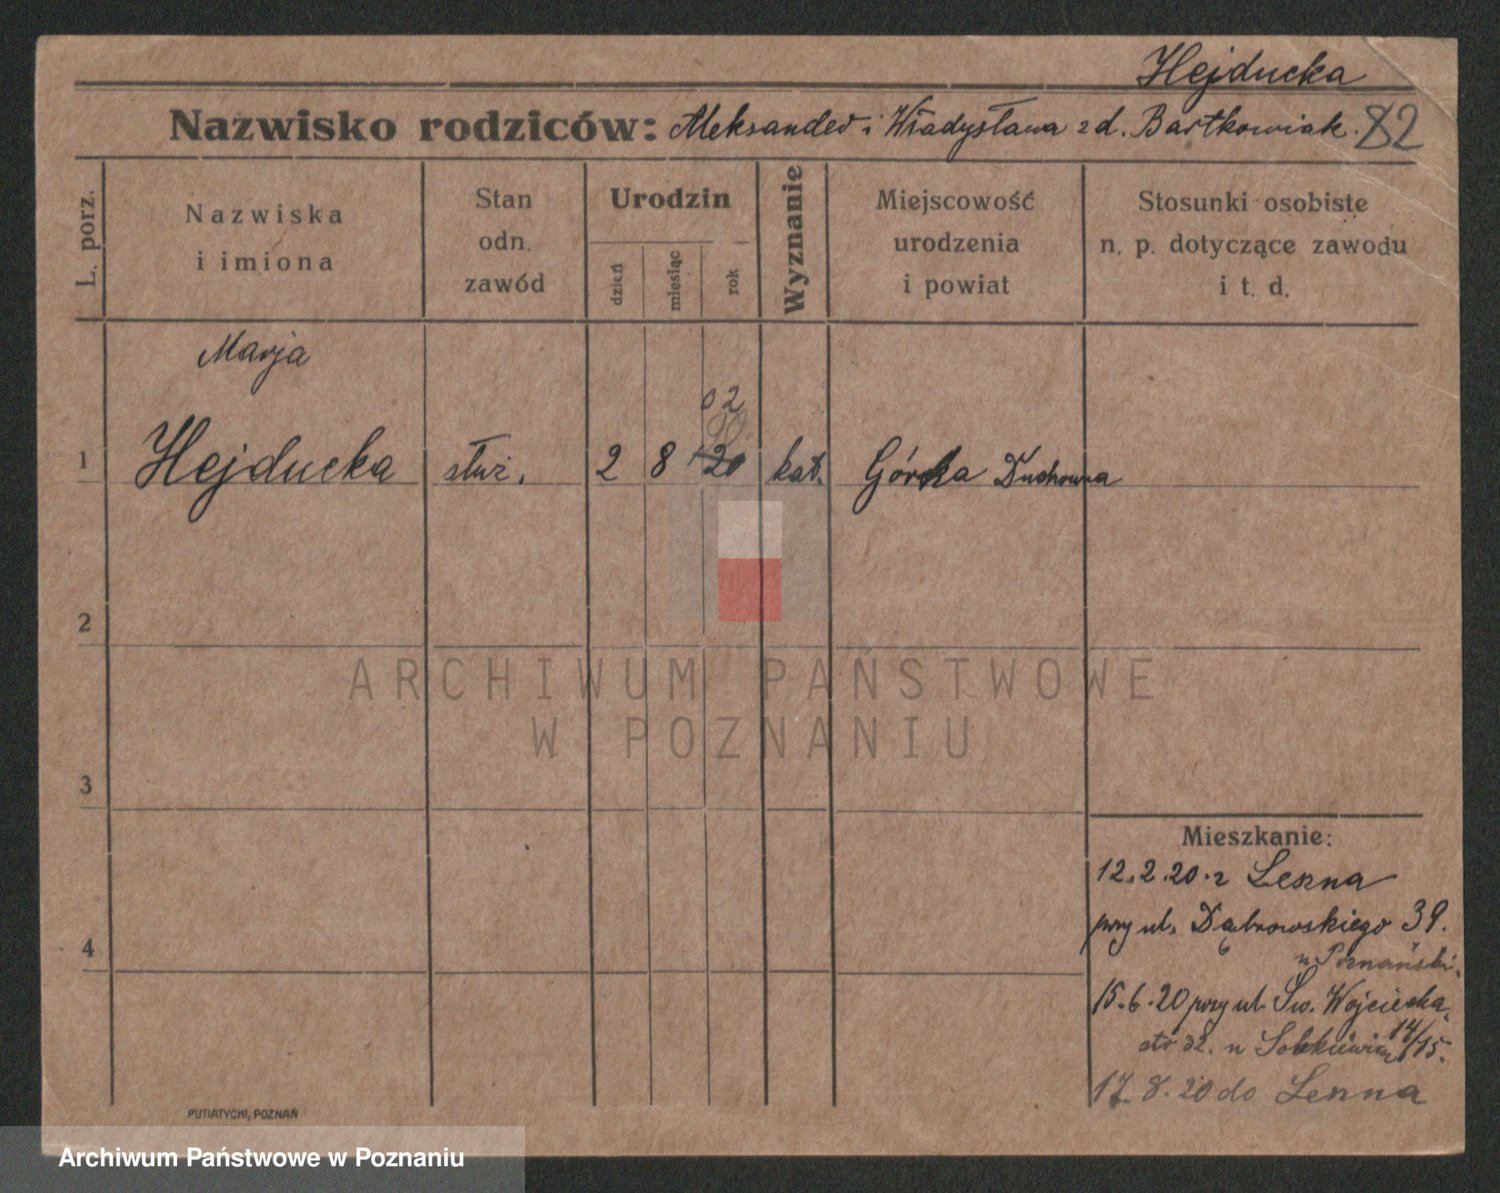 Hejducka
Nazwisko rodziców: Aleksander i Władysława z d. Bartkowiak. 82
L. porz.
Nazwiska
i imiona
Stan
odn.
zawód
Urodzin
dzień
miesiąc
rok
Wyznanie
Miejscowość
urodzenia
i powiat
Stosunki osobiste
n. p. dotyczące zawodu
i t. d.
Marja
02
1 Hejducka służ. 2 8 20 kat. Górka Duchowna
2
ARCHIWUM PAŃSTWOWE
W POZNANIU
3
4
Mieszkanie:
12.2.20. z Leszna
przy ul. Dąbrowskiego 39.
u Poznański.
15.6.20 przy ul. Św. Wojciecha
14/15.
32. u
17.8.20 do Leszna
PUTIATYCKI, POZNAŃ
Archiwum Państwowe w Poznaniu